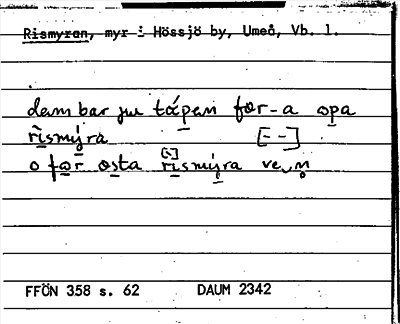 Rismyran, myr i Hössjö by, Umeå, Vb. l.
dem bar ju tάpen for-a opa
rismyra [--]
o for osta rismyra ve
FFÖN 358 s. 62 DAUM 2342